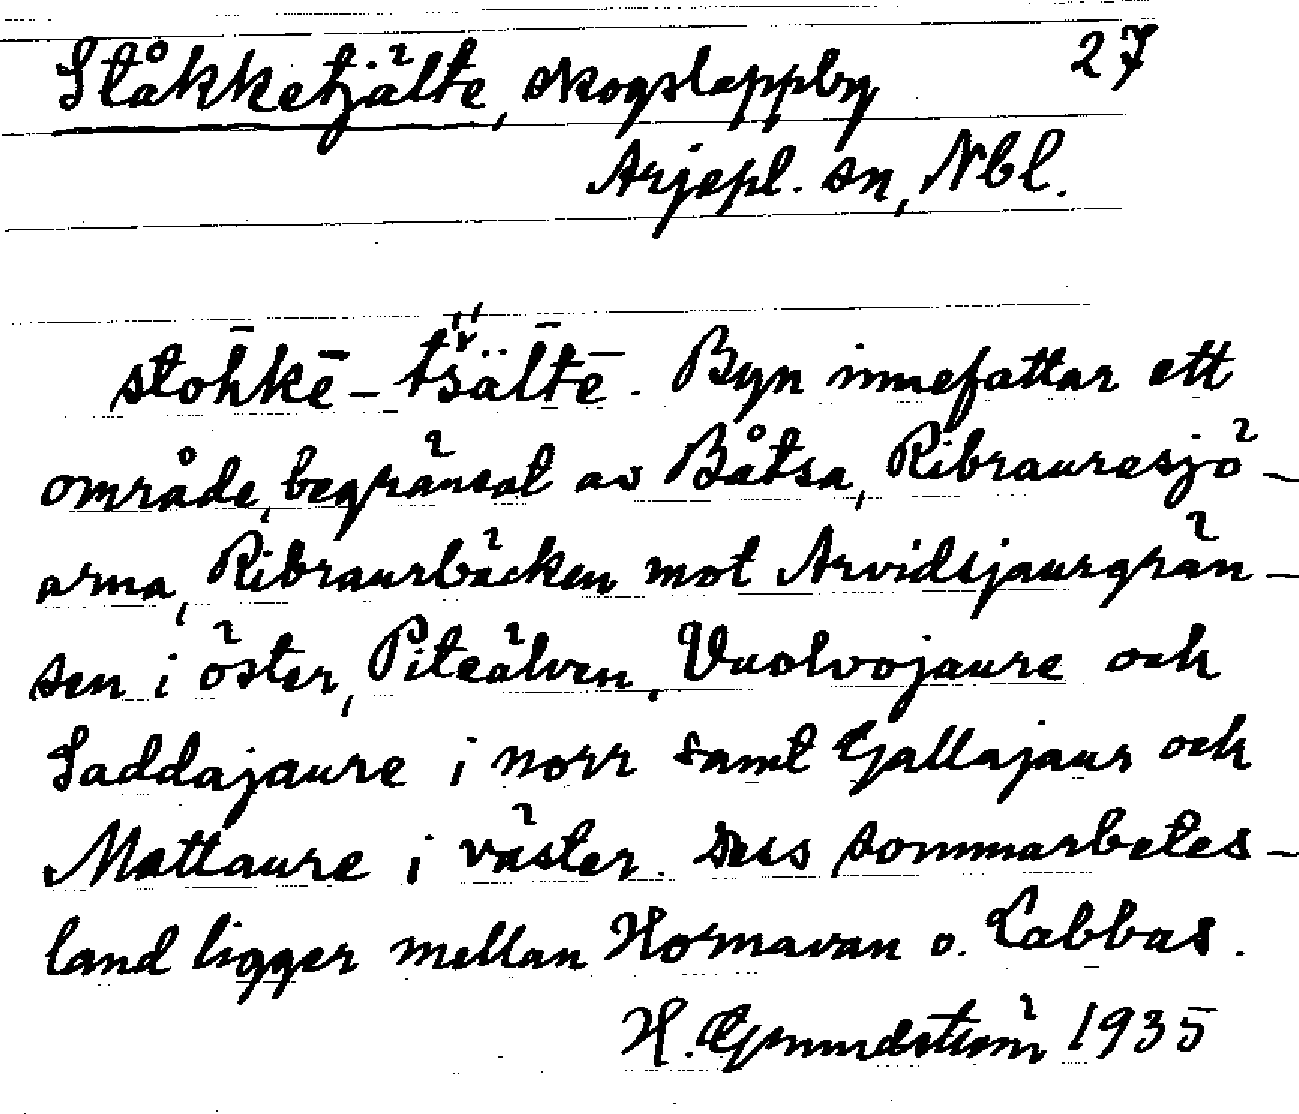 Ståkketjälte, skogslappby 27
Arjepl. sn, Nbl.
stōh̄kē-tš̆äl̄tē. Byn innefattar ett
område, begränsat av Båtsa, Ribrauresjö-
arna, Ribraurbäcken mot Arvidsjaurgrän-
sen i öster, Piteälven, Vuolvojaure och
Saddajaure i norr samt Gallajaur och
Mattaure i väster. Dess sommarbetes-
land ligger mellan Hornavan o. Labbas.
H. Grundström 1935